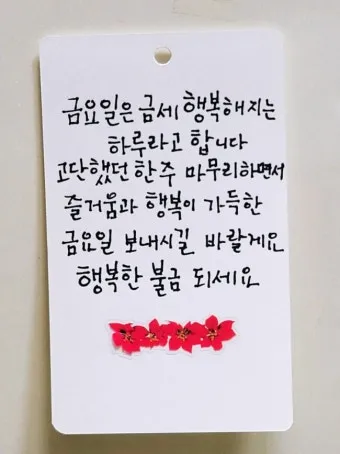 금요일은 금세 행복해지는
하루라고 합니다
고단했던 한주 마무리하면서
즐거움과 행복이 가득한
금요일 보내시길 바랄게요
행복한 불금 되세요